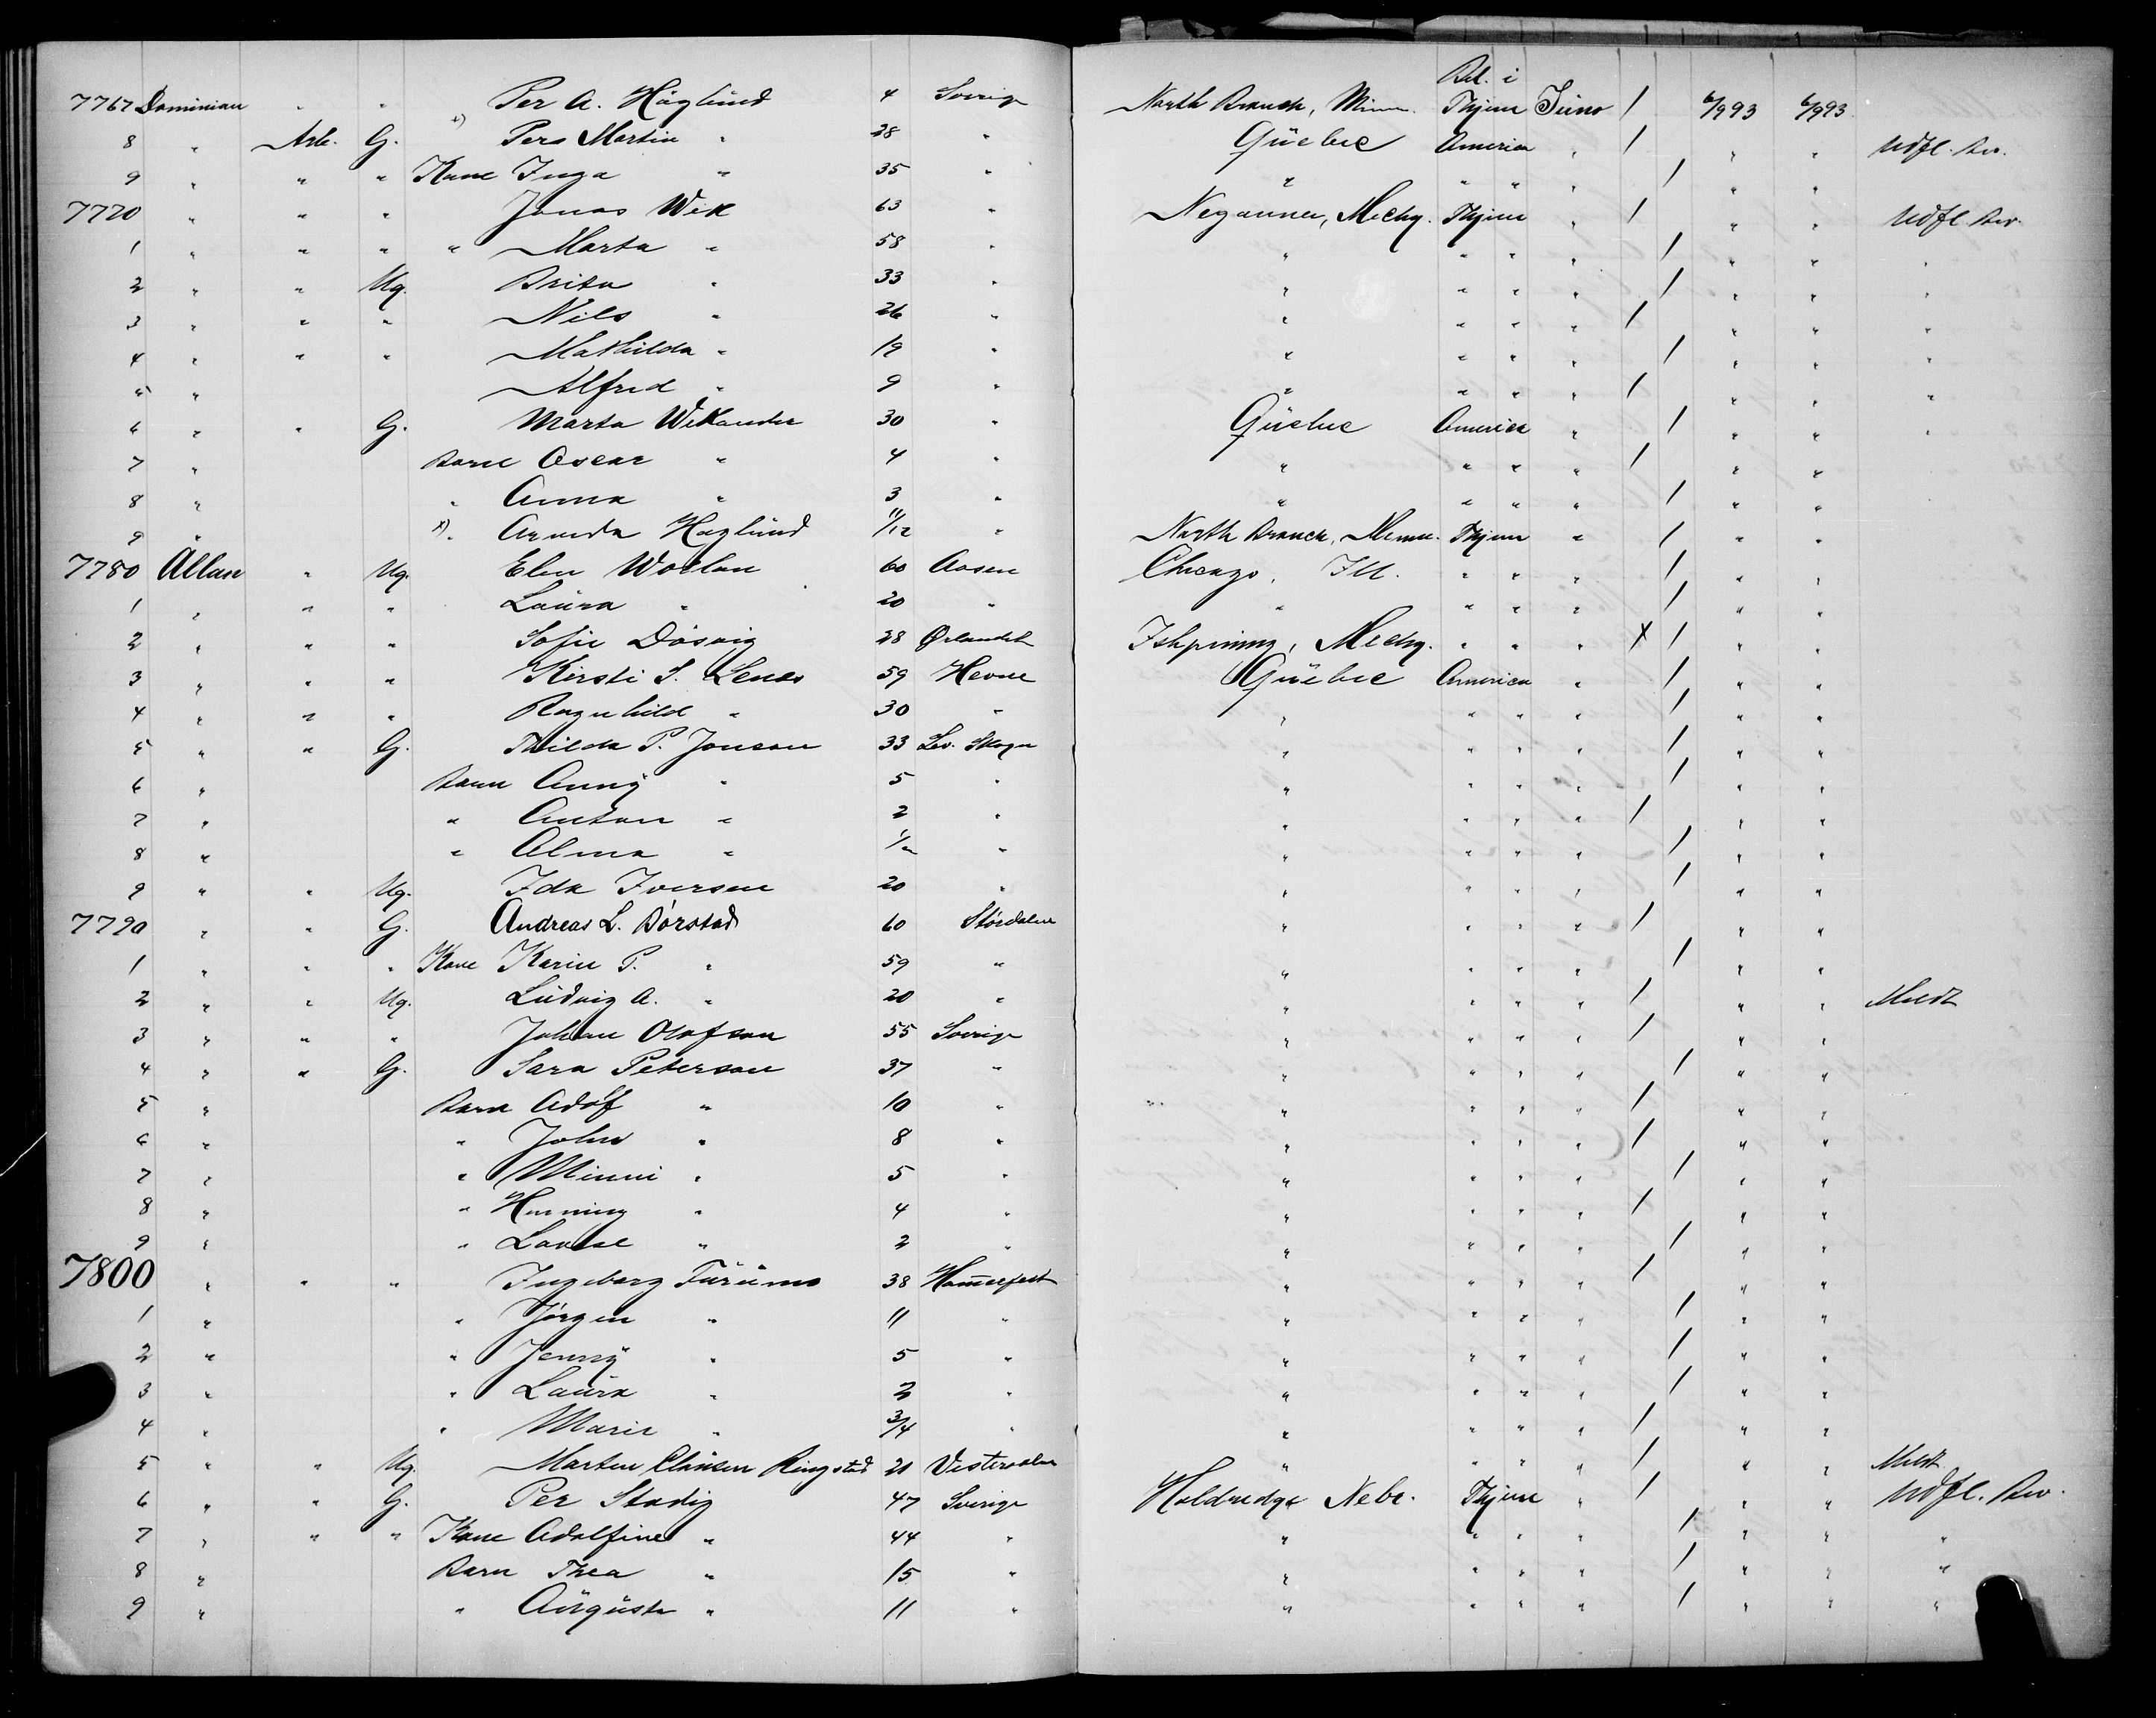 Bet. i
7767 Dominion " " Per A. Höglund 4 Sverige North Branch, Minn. Hjem Juno / 6/9 93 6/9 93
8 " Arb. G. x) Pers Martin " 38 " Quebec America " / " " Udfl. Bev.
9 " " " Kone Inga " 35 " " " " " / " "
7770 " " " Jonas Wik 63 " Negaunee, Mechg. Hjem " / " " Udfl. Bev.
1 " " " " Marta " 58 " " " " " / " " "
2 " " Ug. Brita " 33 " " " " " / " " "
3 " " " Nils " 26 " " " " " / " " "
4 " " " Mathilda " 19 " " " " " / " " "
5 " Alfred " 9 " " " " " / " " "
6 " " G. Marta Wikander 30 " Quebec America " / " " "
7 " Barn Oscar " 4 " " " " " / " "
8 " " Anna " 3 " " " " " / " "
9 " x). Arvida Haglund 11/12 " North Branch, Minn. Hjem " / " "
7780 Allan " Ug. Elen Worlan 60 Aasen Chicago, Ill. " " " / " "
1 " " " Laura " 20 " " " " " / " "
2 " " " Sofie Dösvig 28 Ørlandet Ishpiming, Mechg. " " " X / " "
3 " " " Kirsti S. Lenes 59 Hevne Quebec America " / " "
4 " " " Ragnhild " 30 " " " " " / " "
5 " " G. Thilda P. Jonson 33 Lev. Skogn " " " " / " "
6 " Barn Anny " 5 " " " " " / " "
7 " " Anton " 2 " " " " " / " "
8 " " Alma " " " " " " / " "
9 " " Ug. Ida Iversen 20 " " " " " / " "
7790 " " G. Andreas L. Börstad 60 Størdalen " " " " / " "
1 " " " Kone Karin P. " 59 " " " " " / " "
2 " " Ug. Ludvig A. " 20 " " " " " / " " Meldt
3 " " " Johan Olofson 55 Sverige " " " " / " "
4 " " G. Sara Peterson 37 " " " " " / " "
5 " Barn Adof " 10 " " " " " / " "
6 " " John " 8 " " " " " / " "
7 " " Minni " 5 " " " " " / " "
8 " " Henning " 4 " " " " " / " "
9 " " Lovise " 2 " " " " " / " "
7800 " " " Ingeborg Furumo 38 Hammerfest " " " " / " "
1 " " Jörgen " 11 " " " " " / " "
2 " " Jenny " 5 " " " " " / " "
3 " " Laura " 2 " " " " " / " "
4 " " Marie " 3/4 " " " " " / " "
5 " " Ug. Morten Clausen Ringstad 21 Vesteraalen " " " " / " " Meldt
6 " " G. Per Stadig 47 Sverige Holdredge Nebr. Hjem " / " " Udfl. Bev.
7 " " " Kone Adolfine " 44 " " " " " / " " "
8 " Barn Thea " 15 " " " " " / " " "
9 " " Augusta " 11 " " " " " / " " "